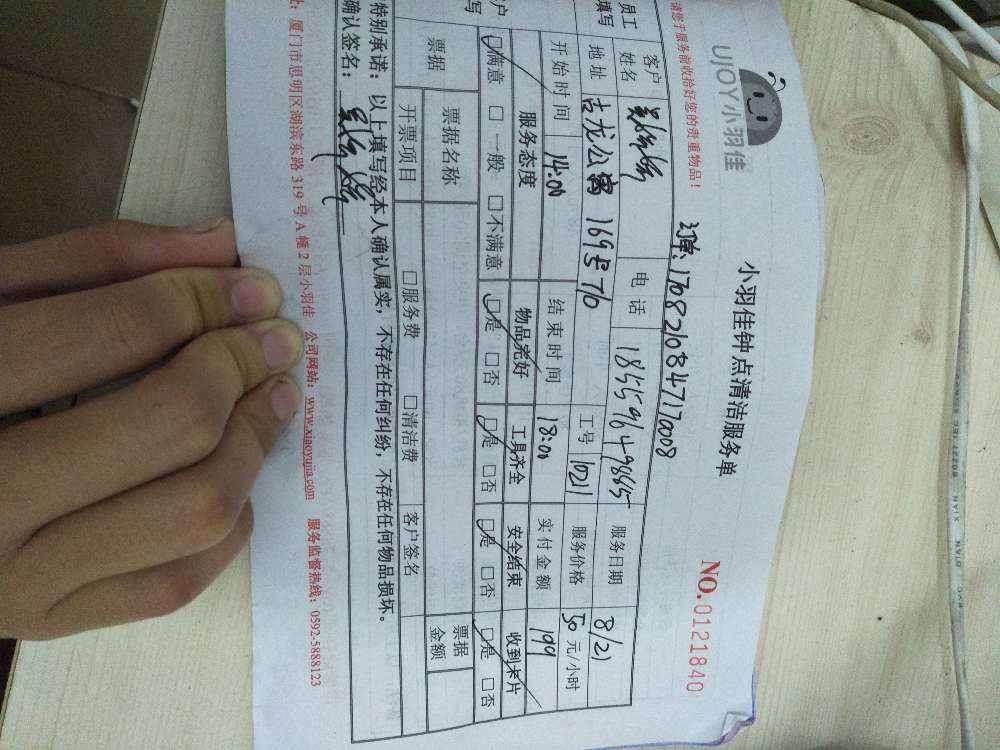 UJOY小羽佳
小羽佳钟点清洁服务单
NO.0121840
请您于服务前收拾好您的贵重物品！
170821084717008
员工填写
客户姓名
电话 18559649885
服务日期 8/21
地址 古龙公寓 169号 710
工号 10211
服务价格 50元/小时
开始时间 14:00
结束时间 18:00
实付金额 199
服务态度 物品完好 工具齐全 安全结束 收到卡片
☑满意 □一般 □不满意 ☑是 □否 ☑是 □否 ☑是 □否 ☑是 □否
票据 票据名称 票据金额
开票项目 □服务费 □清洁费 客户签名
特别承诺：以上填写经本人确认属实，不存在任何纠纷，不存在任何物品损坏。
确认签名：
址：厦门市思明区湖滨东路319号A幢2层小羽佳 公司网站：www.xiaoyujia.com 服务监督热线：0592-5888123